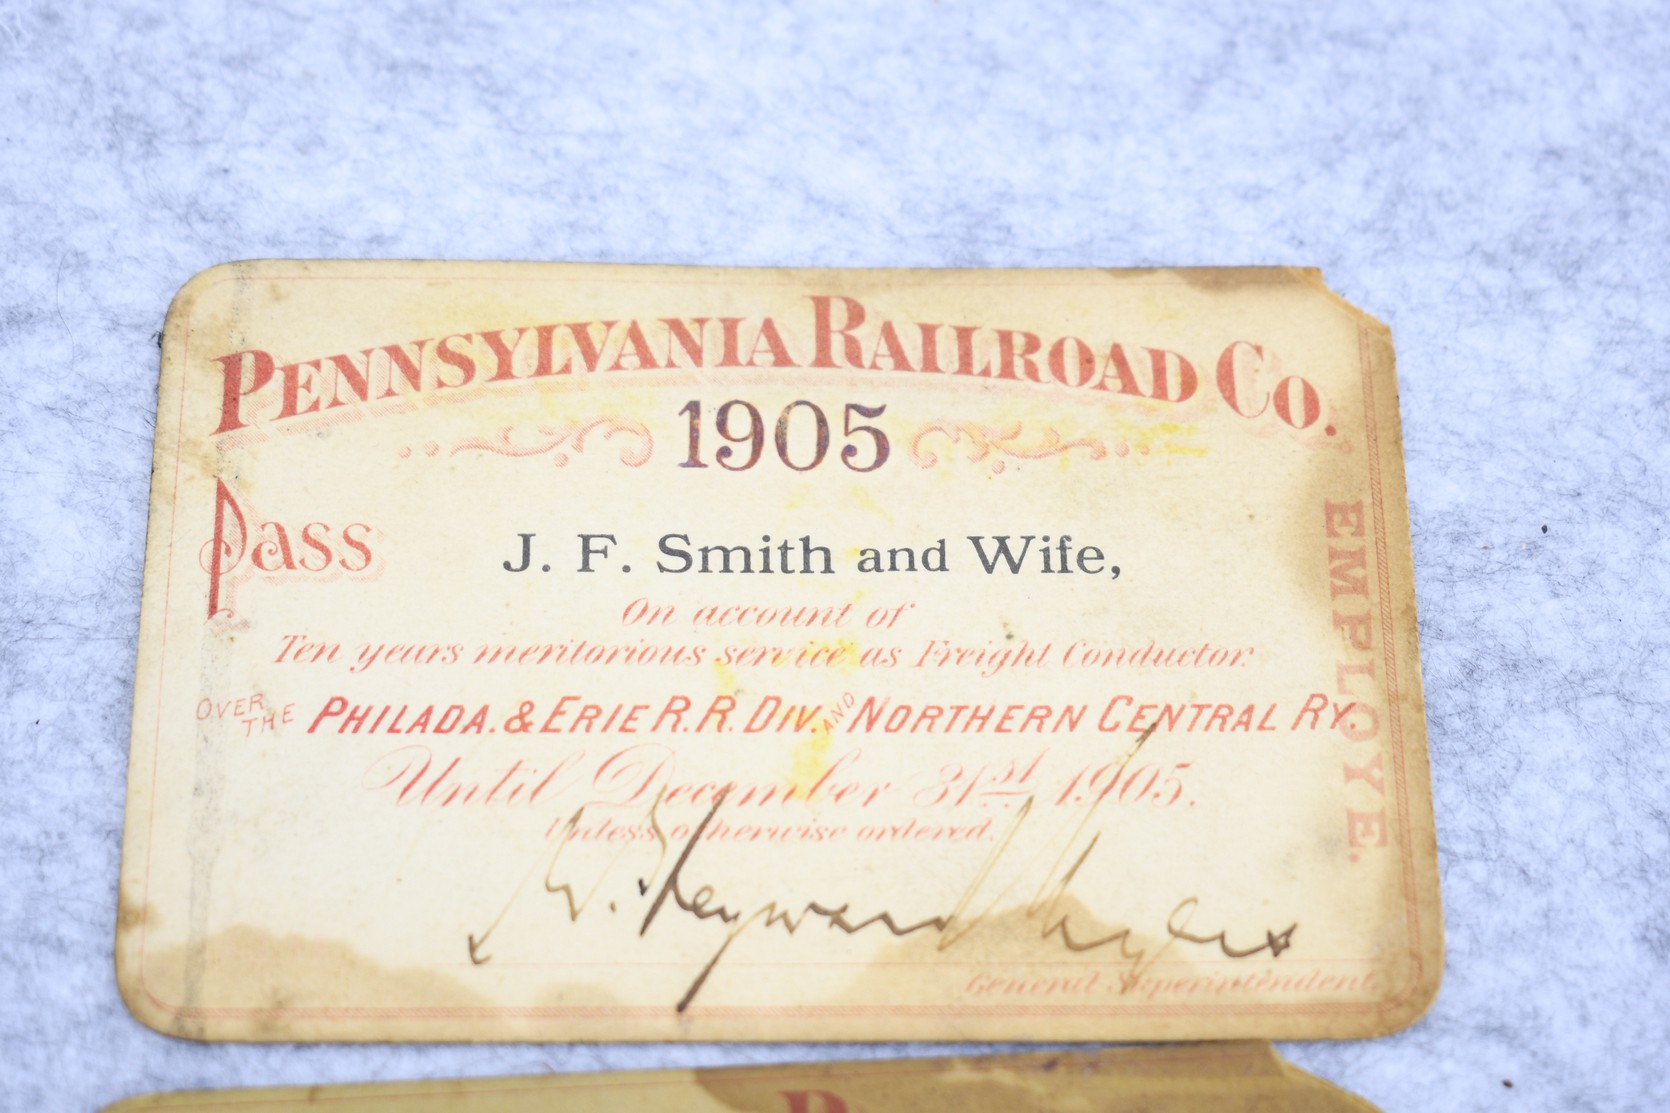 PENNSYLVANIA RAILROAD CO.
1905
Pass J. F. Smith and Wife,
On account of
Ten years meritorious service as Freight Conductor.
OVER THE PHILADA. & ERIE R. R. DIV. AND NORTHERN CENTRAL RY.
Until December 31st 1905.
Unless otherwise ordered.
General Superintendent.
EMPLOYE.